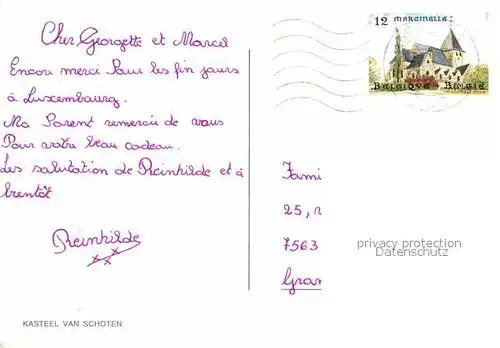 Cher Georgette et Marcel
Encore merci Pour les fin jours
à Luxembourg.
Ma Parent remercie de vous
Pour votre beau cadeau.
Les salutation de Reinhilde et à
brentôt
Reinhilde
xxx
KASTEEL VAN SCHOTEN
12 MARCINELLE
BELGIQUE BELGIË
Fami
25, r
7563
Grar
privacy protection
Datenschutz